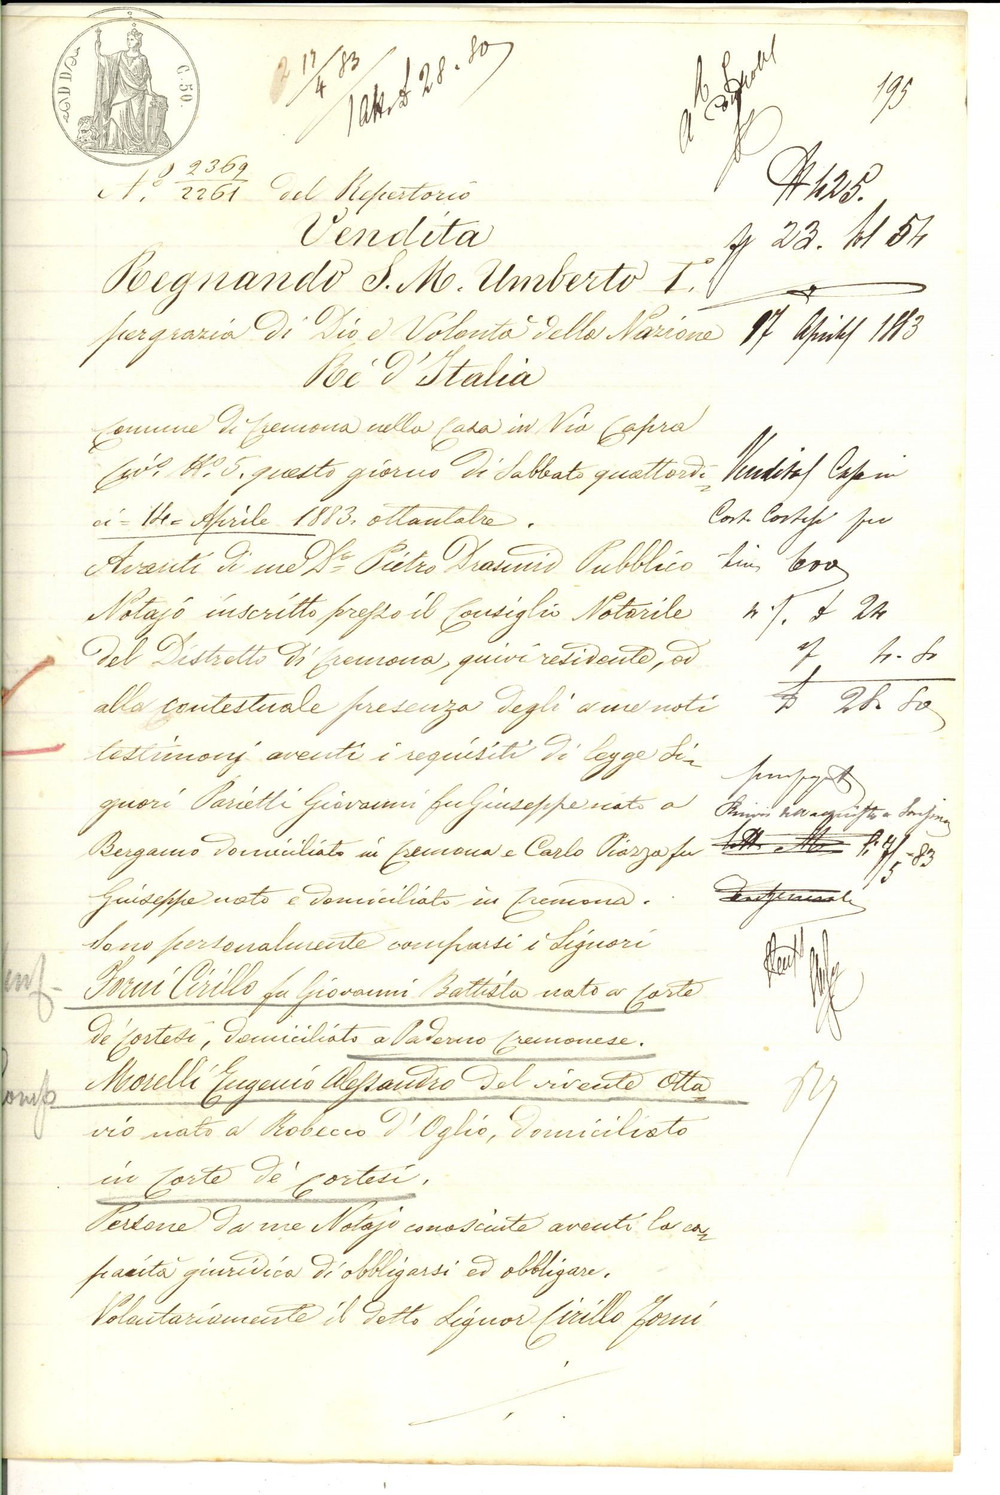 DD C. 50.
17/4 83
28.80
195
N.º 2369/2261 del Repertorio
Vendita
Regnando S. M. Umberto I.º
per grazia di Dio e Volontà della Nazione
Ré d'Italia
Comune di Cremona nella Casa in Via Capra
Civ.º N.º 5. questo giorno di Sabbato quattordi=
ci = 14 = Aprile 1883. ottantatre.
Avanti di me D.r Pietro Pubblico
Notajo inscritto presso il Consiglio Notarile
del Distretto di Cremona, quivi residente, ed
alla contestuale presenza degli a me noti
testimonj aventi i requisiti di legge Si=
gnori Parietti Giovanni fu Giuseppe nato a
Bergamo domiciliato in Cremona e Carlo Piazza fu
Giuseppe nato e domiciliato in Cremona.
Sono personalmente comparsi i Signori
Forni Cirillo fu Giovanni Battista nato a Corte
de' Cortesi, domiciliato a Paderno Cremonese.
Morelli Eugenio Alessandro del vivente Otta=
vio nato a Robecco d'Oglio, domiciliato
in Corte de' Cortesi.
Persone da me Notajo conosciute aventi la ca=
pacità giuridica di obbligarsi ed obbligare.
Volontariamente il detto Signor Cirillo Forni
425.
23. Vol 54
17 Aprile 1883
Vendita Casa in
Corte Cortesi per
Lire 600
24
4.80
28.80